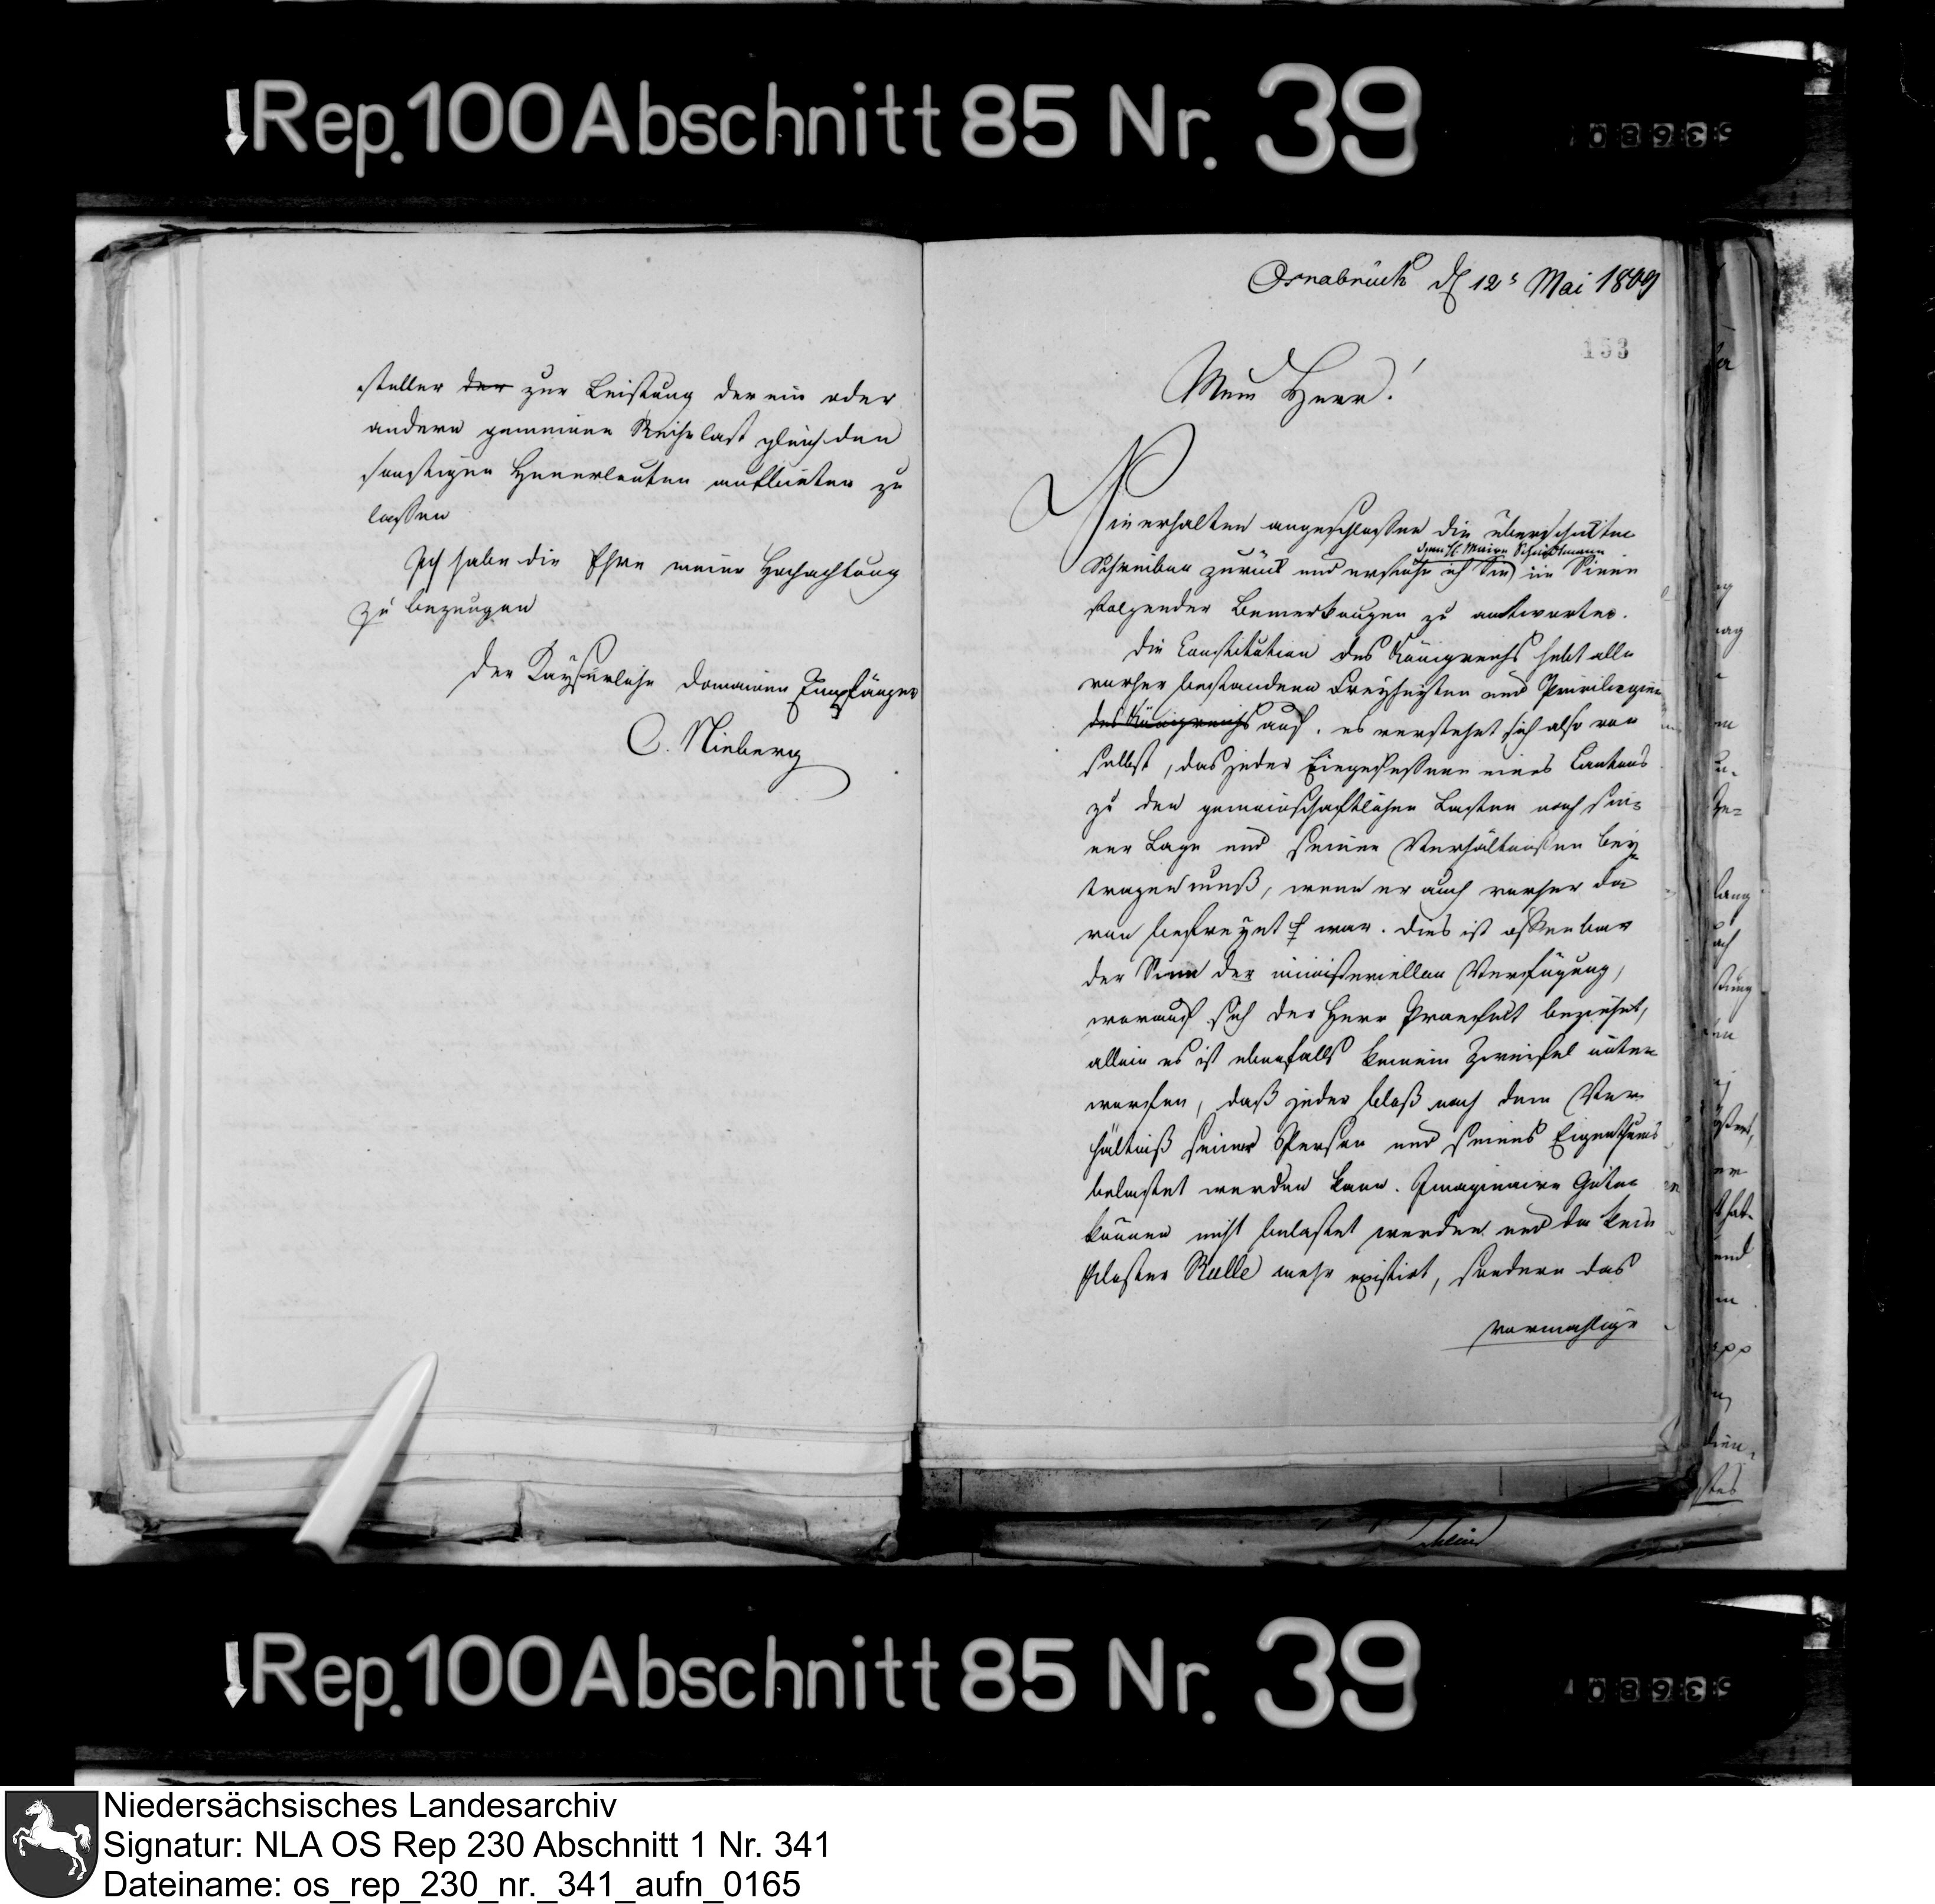 Rep. 100 Abschnitt 85 Nr. 39
steller der zur Leistung der ein oder
andern gemeinen Reihelast gleich den
sonstigen Heuerleuten aufbieten zu
lassen
Ich habe die Ehre meine Hochachtung
zu bezeugen
Der Kayserliche Domainen Empfänger
C. Nieberg
Osnabrück d 12s Mai 1809
153
Mein Herr!
Sie erhalten angeschlossen die überschickten
dem H. Maire Schürmann
Schreiben zurück und ersuche ich Sie im Sinne
folgender Bemerkungen zu antworten.
Die Constitution des Königreichs hebt alle
vorher bestandene Freyheyten und Privilegien
des Königreichs auf. es verstehet sich also von
selbst, das jeder Eingesessene eines Cantons
zu den gemeinschaftlichen Lasten nach sei-
ner Lage und seinen Verhältnißen bey
tragen muß, wenn er auch vorher da
von befreyet war. Dies ist offenbar
der Sinn der ministeriellen Verfügung,
worauf sich der Herr Praefect beziehet,
allein es ist ebenfalls keinem Zweifel unter
worfen, daß jeder bloß nach dem Ver
hältniß seiner Person und seines Eigenthums
belastet werden kann. Imaginaire Güter
können nicht belastet werden und da kein
Kloster Rulle mehr existirt, sondern das
vormahlige
Rep. 100 Abschnitt 85 Nr. 39
Niedersächsisches Landesarchiv
Signatur: NLA OS Rep 230 Abschnitt 1 Nr. 341
Dateiname: os_rep_230_nr._341_aufn_0165